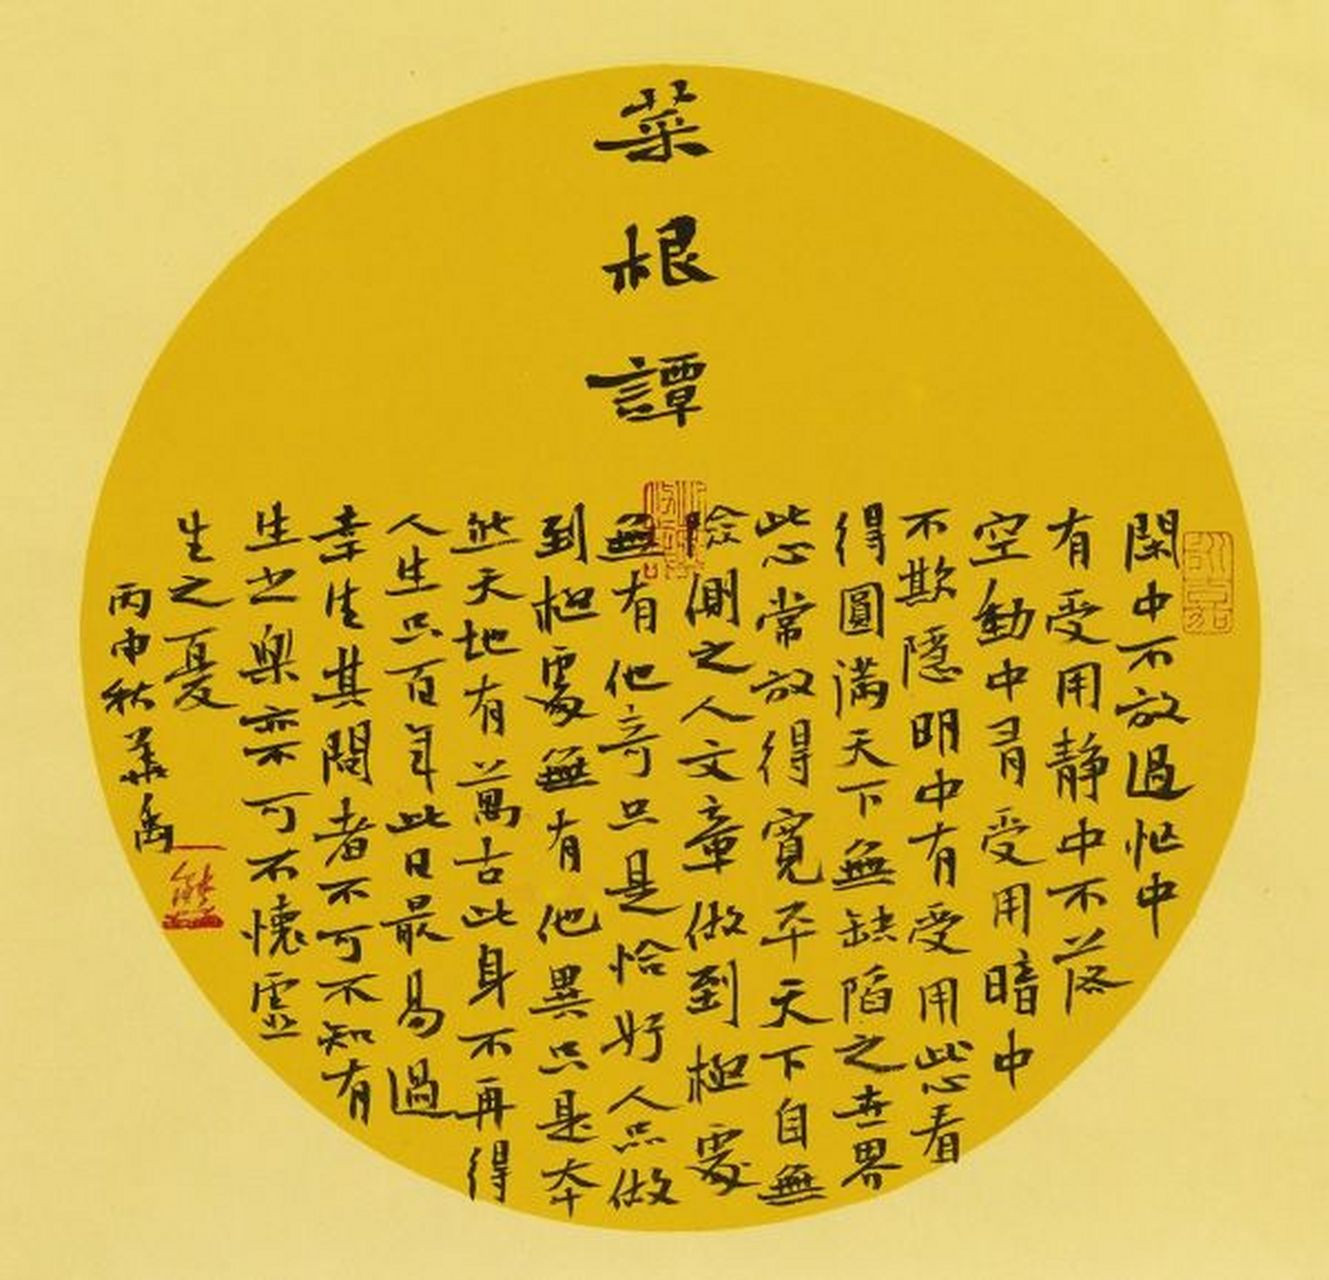 菜根譚
閑中不放過忙中
有受用静中不落
空動中有受用暗中
不欺隱明中有受用此心看
得圓滿天下無缺陷之世界
此心常放得寬平天下自無
險側之人文章做到極處
無有他奇只是恰好人品做
到極處無有他異只是本
然天地有萬古此身不再得
人生只百年此日最易過
幸生其間者不可不知有
生之樂亦可不懷虛
生之憂
丙申秋